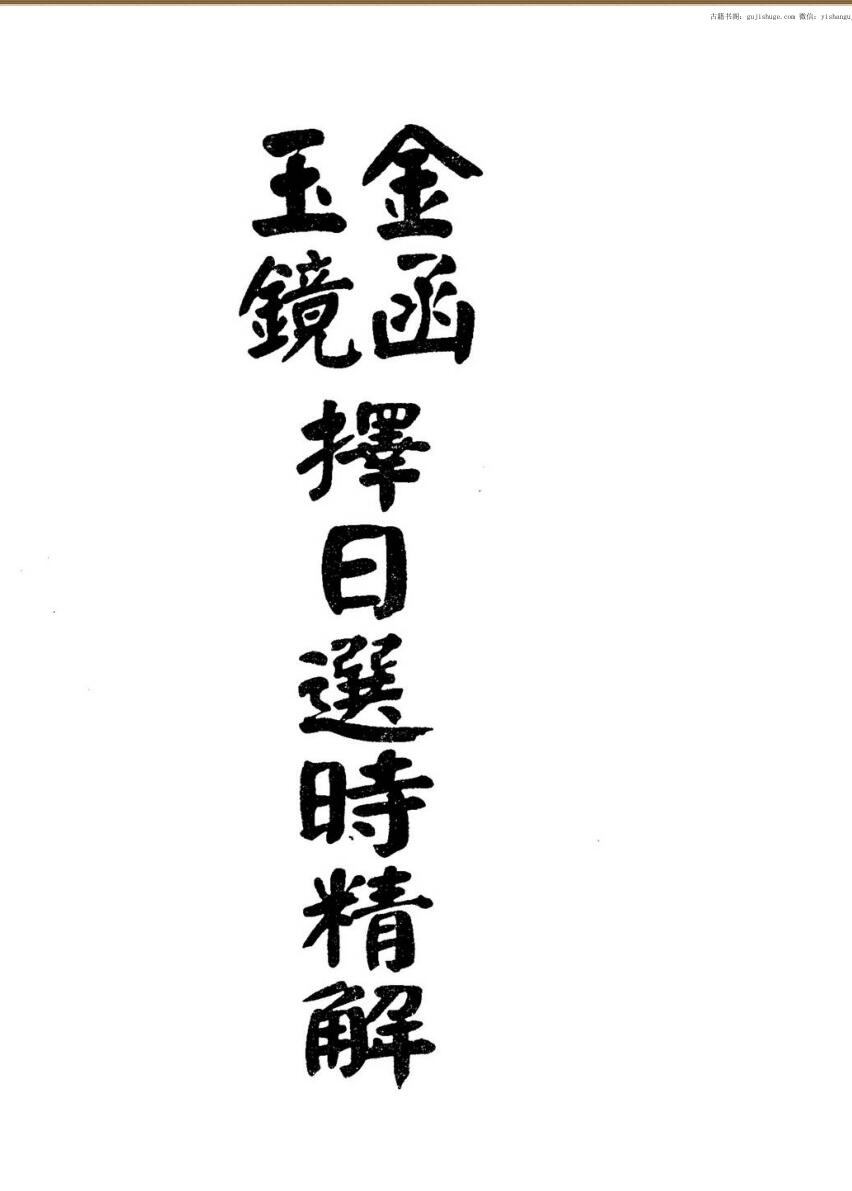 古籍书阁：gujishuge.com 微信：yishangu
金函
玉鏡
擇日選時精解